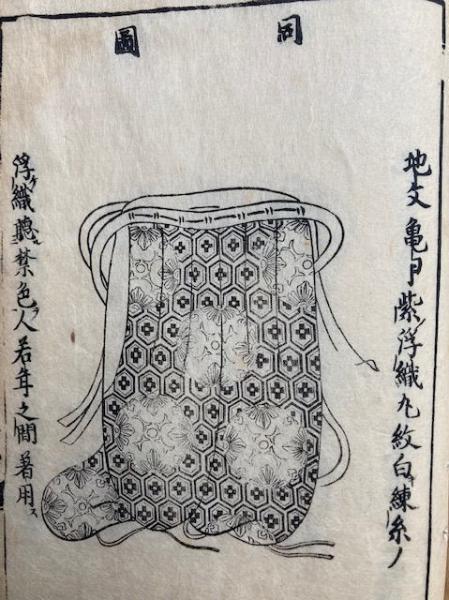 同圖
地文亀甲紫浮織丸紋白練糸ノ
浮織聴禁色人若年之間著用ス